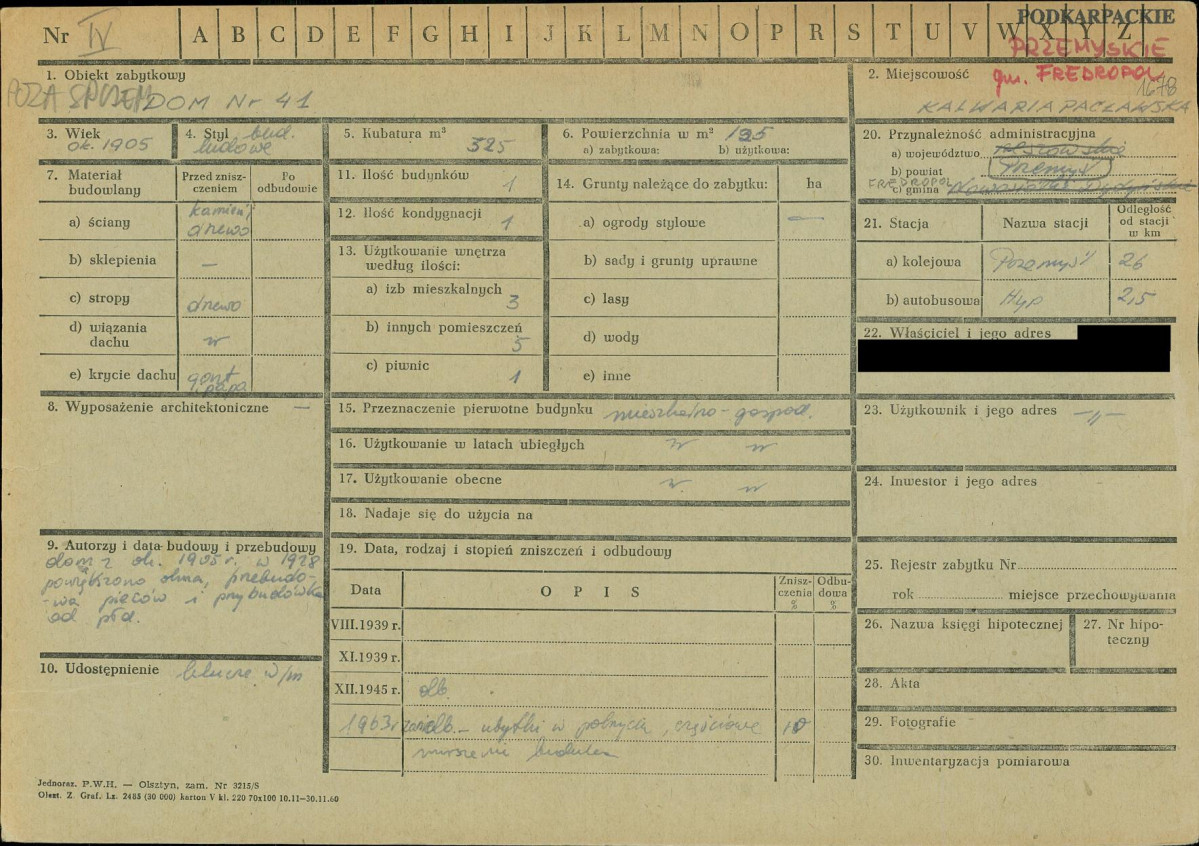 Nr IV A B C D E F G H I J K L M N O P R S T U V W X Y Z
PODKARPACKIE
PRZEMYSKIE
gm. FREDROPOL
1678
1. Obiekt zabytkowy
POZA SPISEM DOM Nr 41
2. Miejscowość
KALWARIA PACŁAWSKA
3. Wiek
ok. 1905
4. Styl bud.
ludowe
5. Kubatura m³
325
6. Powierzchnia w m² 135
a) zabytkowa: b) użytkowa:
7. Materiał budowlany
Przed zniszczeniem
Po odbudowie
a) ściany kamień
drewo
b) sklepienia —
c) stropy drewo
d) wiązania dachu "
e) krycie dachu gont
i papa
8. Wyposażenie architektoniczne —
9. Autorzy i data budowy i przebudowy
dom z ok. 1905 r. w 1928
powiększono okna, przebudo-
-wa pieców i przybudówka
od płd.
10. Udostępnienie
11. Ilość budynków 1
12. Ilość kondygnacji 1
13. Użytkowanie wnętrza według ilości:
a) izb mieszkalnych 3
b) innych pomieszczeń 5
c) piwnic 1
14. Grunty należące do zabytku: ha
a) ogrody stylowe —
b) sady i grunty uprawne
c) lasy
d) wody
e) inne
15. Przeznaczenie pierwotne budynku mieszkalno-gospod.
16. Użytkowanie w latach ubiegłych " "
17. Użytkowanie obecne " "
18. Nadaje się do użycia na
19. Data, rodzaj i stopień zniszczeń i odbudowy
Data OPIS Zniszczenia % Odbudowa %
VIII.1939 r.
XI.1939 r.
XII.1945 r. db.
1963 r db. — ubytki w pobryciu, częściowe 10
murszenie budulca
20. Przynależność administracyjna
a) województwo rzeszowskie
b) powiat Przemyśl
c) gmina FREDROPOL
21. Stacja Nazwa stacji Odległość od stacji w km
a) kolejowa Przemyśl 26
b) autobusowa Hyp 2,5
22. Właściciel i jego adres
23. Użytkownik i jego adres —"—
24. Inwestor i jego adres
25. Rejestr zabytku Nr
rok miejsce przechowywania
26. Nazwa księgi hipotecznej
27. Nr hipoteczny
28. Akta
29. Fotografie
30. Inwentaryzacja pomiarowa
Jednoraz. P.W.H. — Olsztyn, zam. Nr 3215/S
Olszt. Z. Graf. Lz. 2485 (30 000) karton V kl. 220 70x100 10.11—30.11.60